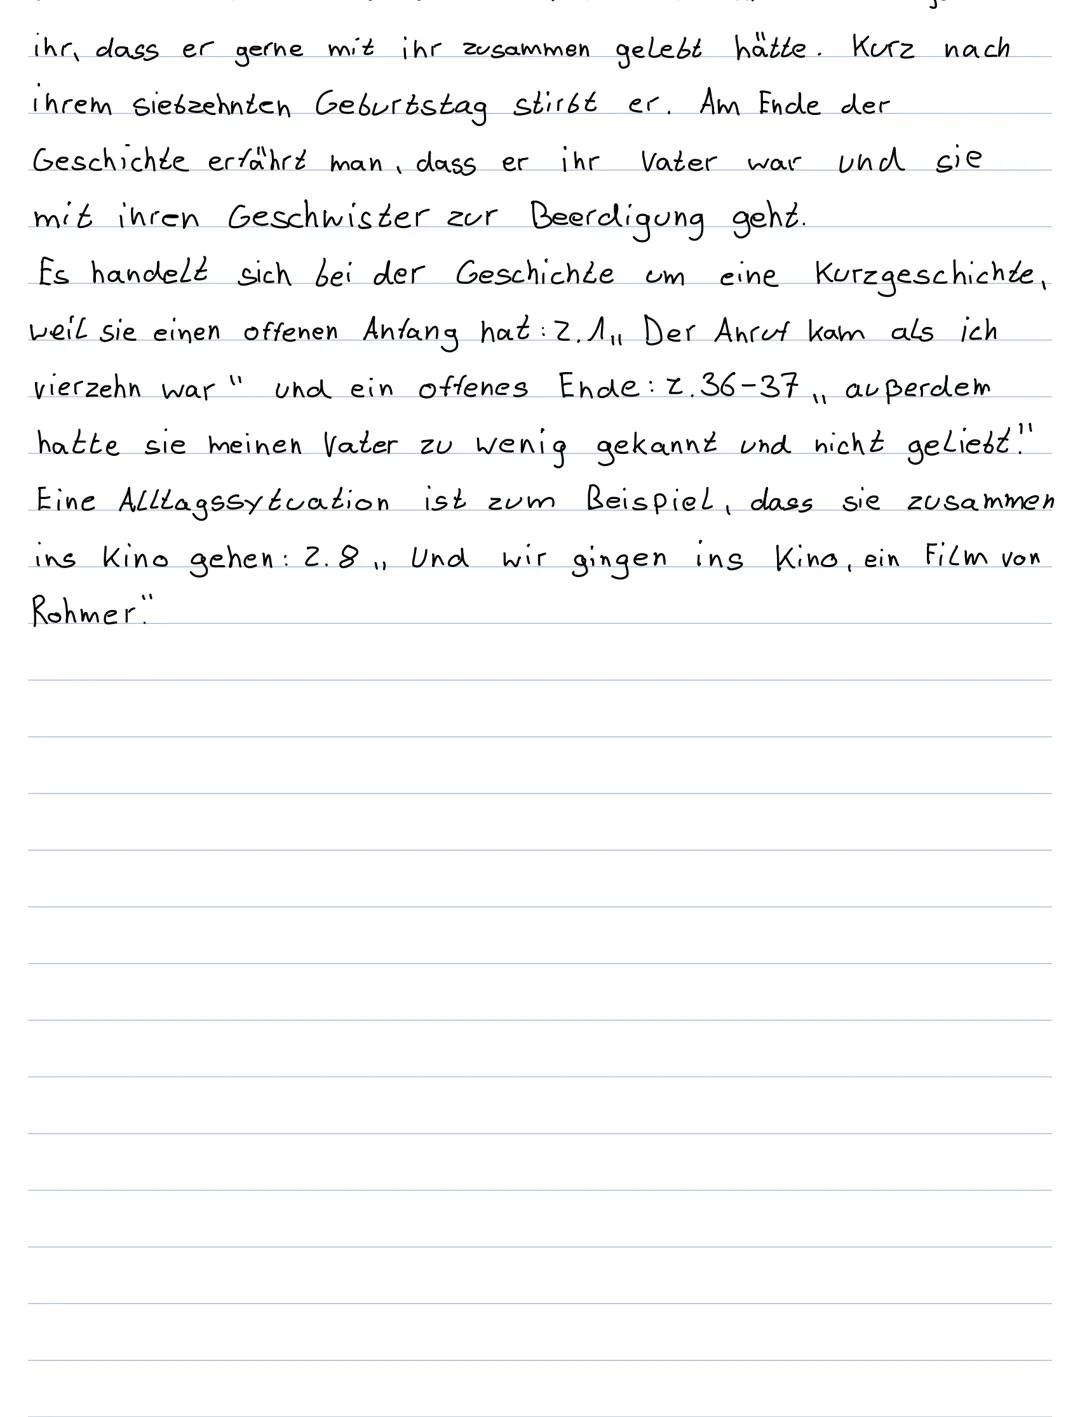 ihr, dass er gerne mit ihr zusammen gelebt hätte. Kurz nach
ihrem siebzehnten Geburtstag stirbt er. Am Ende der
Geschichte erfährt man, dass er ihr Vater war und sie
mit ihren Geschwister zur Beerdigung geht.
Es handelt sich bei der Geschichte um eine Kurzgeschichte,
weil sie einen offenen Anfang hat: Z.1„ Der Anruf kam als ich
vierzehn war" und ein offenes Ende: Z.36-37 „ außerdem
hatte sie meinen Vater zu wenig gekannt und nicht geliebt."
Eine Alltagssytuation ist zum Beispiel, dass sie zusammen
ins Kino gehen: Z.8 „ Und wir gingen ins Kino, ein Film von
Rohmer."